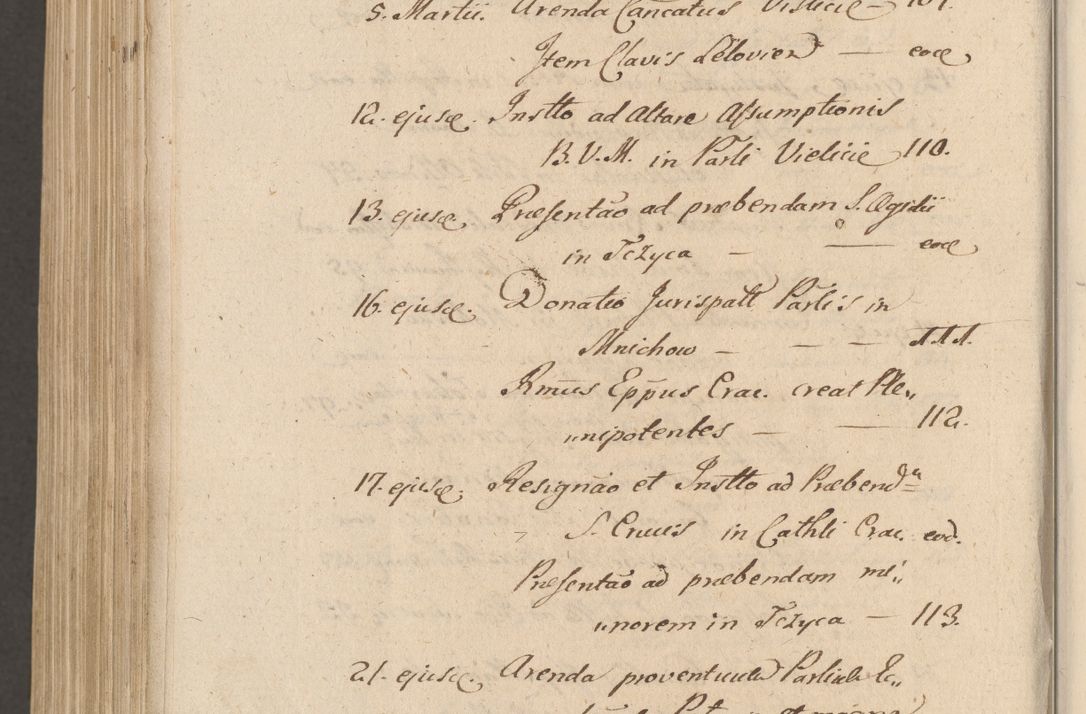 5. Martii. Arenda Cancatus Vislicie — 109.
Item Clavis Lelovien — eod
12. ejusd. Instto ad Altare Assumptionis
B. V. M. in Parli Vielicie 110.
13. ejusd. Præsentao ad præbendam S. Ægidii
in Tczyca — — eod
16. ejusd. Donatio Jurispatt Parlis in
Mnichow — — — 111.
Rmus Eppus Crac. creat Ple„
„nipotentes — — 112.
17. ejusd. Resignao et Instto ad Præbend
S. Crucis in Cathli Crac. eod.
Præsentao ad præbendam mi„
„norem in Tczyca — 113.
21. ejusd. Arenda proventuum Parlial